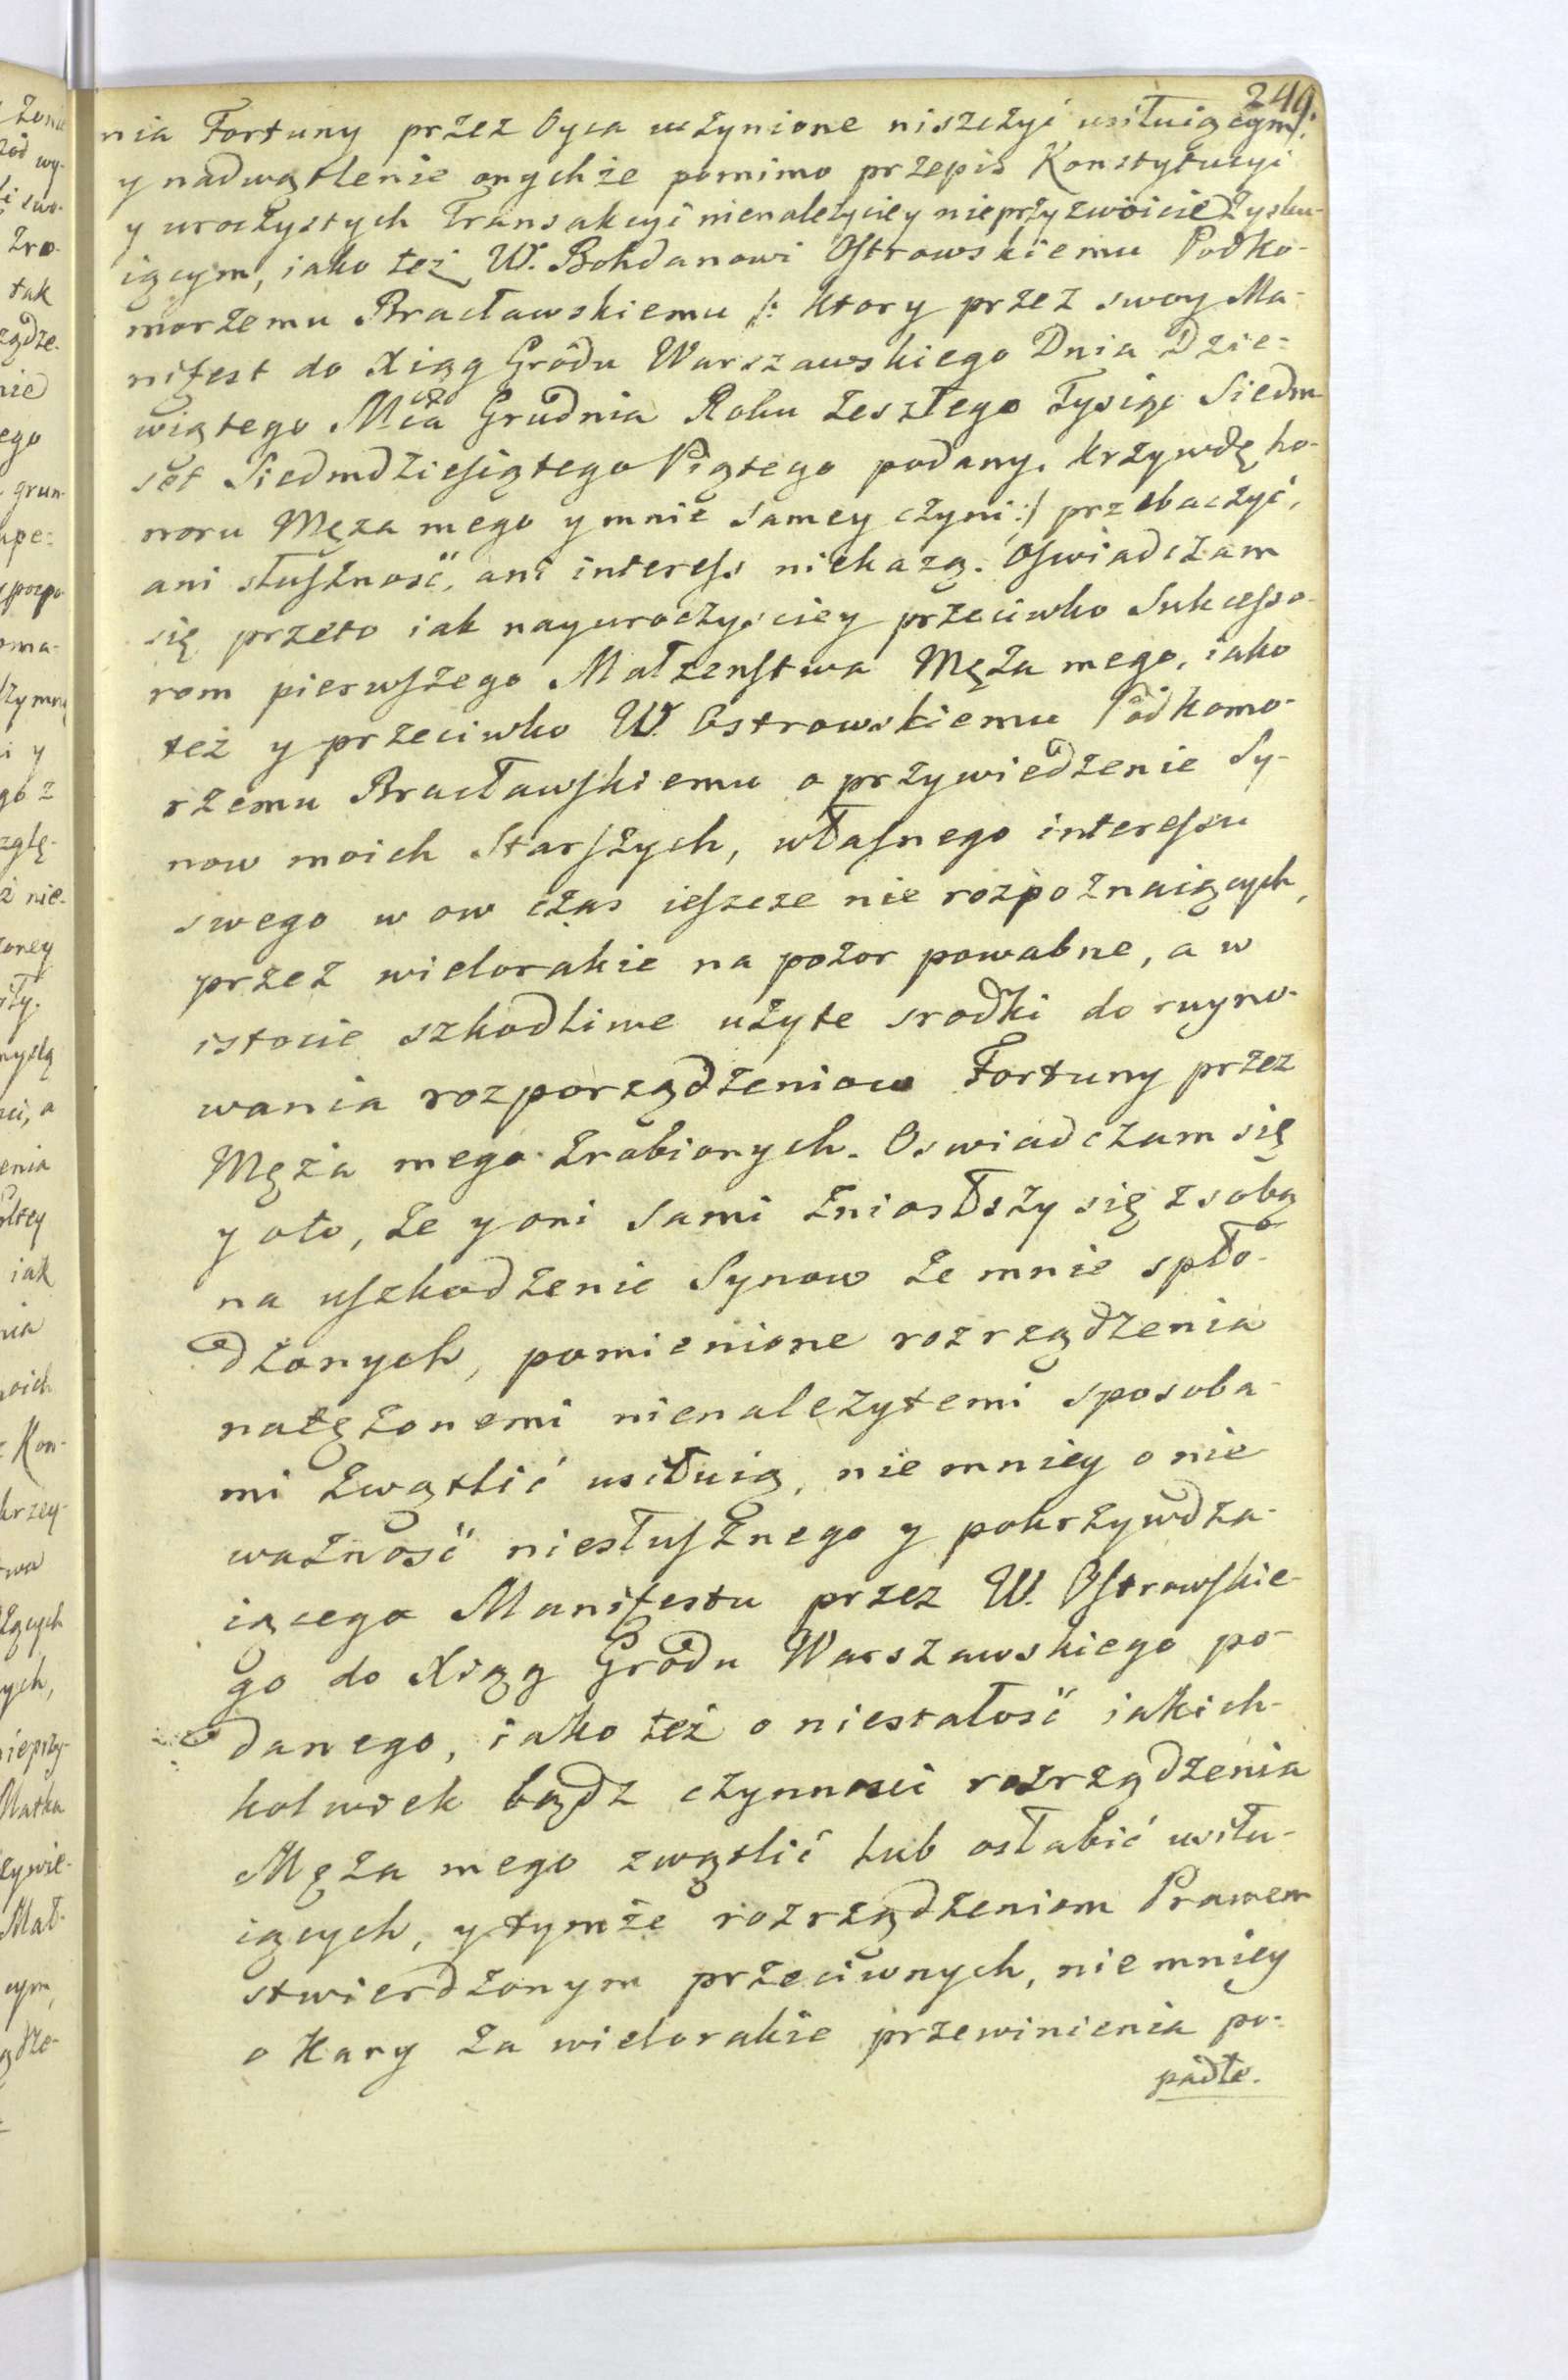 249.
nia Fortuny przez Oyca uczynione niszczyć usiłuiącym:
y nadwątlenie onychże pomimo przepis Konstytucyi
y uroczystych Transakcyi nienależyciey nieprzyzwoicie zysku-
iącym, iako też W. Bohdanowi Ostrowskiemu Podko-
morzemu Bracławskiemu /: ktory przez swoy Ma-
nifest do Xiąg Grodu Warszawskiego Dnia Dzie-
wiątego Mca Grudnia Roku zeszłego Tysiąc Siedm
set Siedmdziesiątego Piątego podany, krzywdę ho-
noru Męża mego y mnie samey czyni :/ przebaczyć,
ani słuszność, ani interess niekażą. Oswiadczam
się przeto iak nayuroczysciey przeciwko Sukcesso-
rom pierwszego Małżenstwa Męża mego, iako
też y przeciwko W. Ostrowskiemu Podkomo-
rzemu Bracławskiemu o przywiedzenie Sy-
now moich Starszych, własnego interessu
swego w ow czas ieszcze nie rozpoznaiących,
przez wielorakie na pozor powabne, a w
istocie szkodliwe użyte srodki do ruyno-
wania rozporządzeniow Fortuny przez
Męża mego zrobionych. Oswiadczam się
y oto, że y oni sami zniosłszy się z sobą
na uszkodzenie Synow ze mnie spło-
dzonych, pomienione rozrządzenia
natężonemi nienależytemi sposoba-
mi zwątlić usiłuią, nie mniey o nie
ważność niesłusznego y pokrzywdza-
iącego Manifestu przez W. Ostrowskie-
go do Xiąg Grodu Warszawskiego po-
danego, iako też o niestałość iakich-
kolwiek bądz czynnosci rozrządzenia
Męża mego zwątlić lub osłabić usiłu-
iących, y tymże rozrządzeniom Prawem
stwierdzonym przeciwnych, nie mniey
o Kary za wielorakie przewinienia po-
padłe.